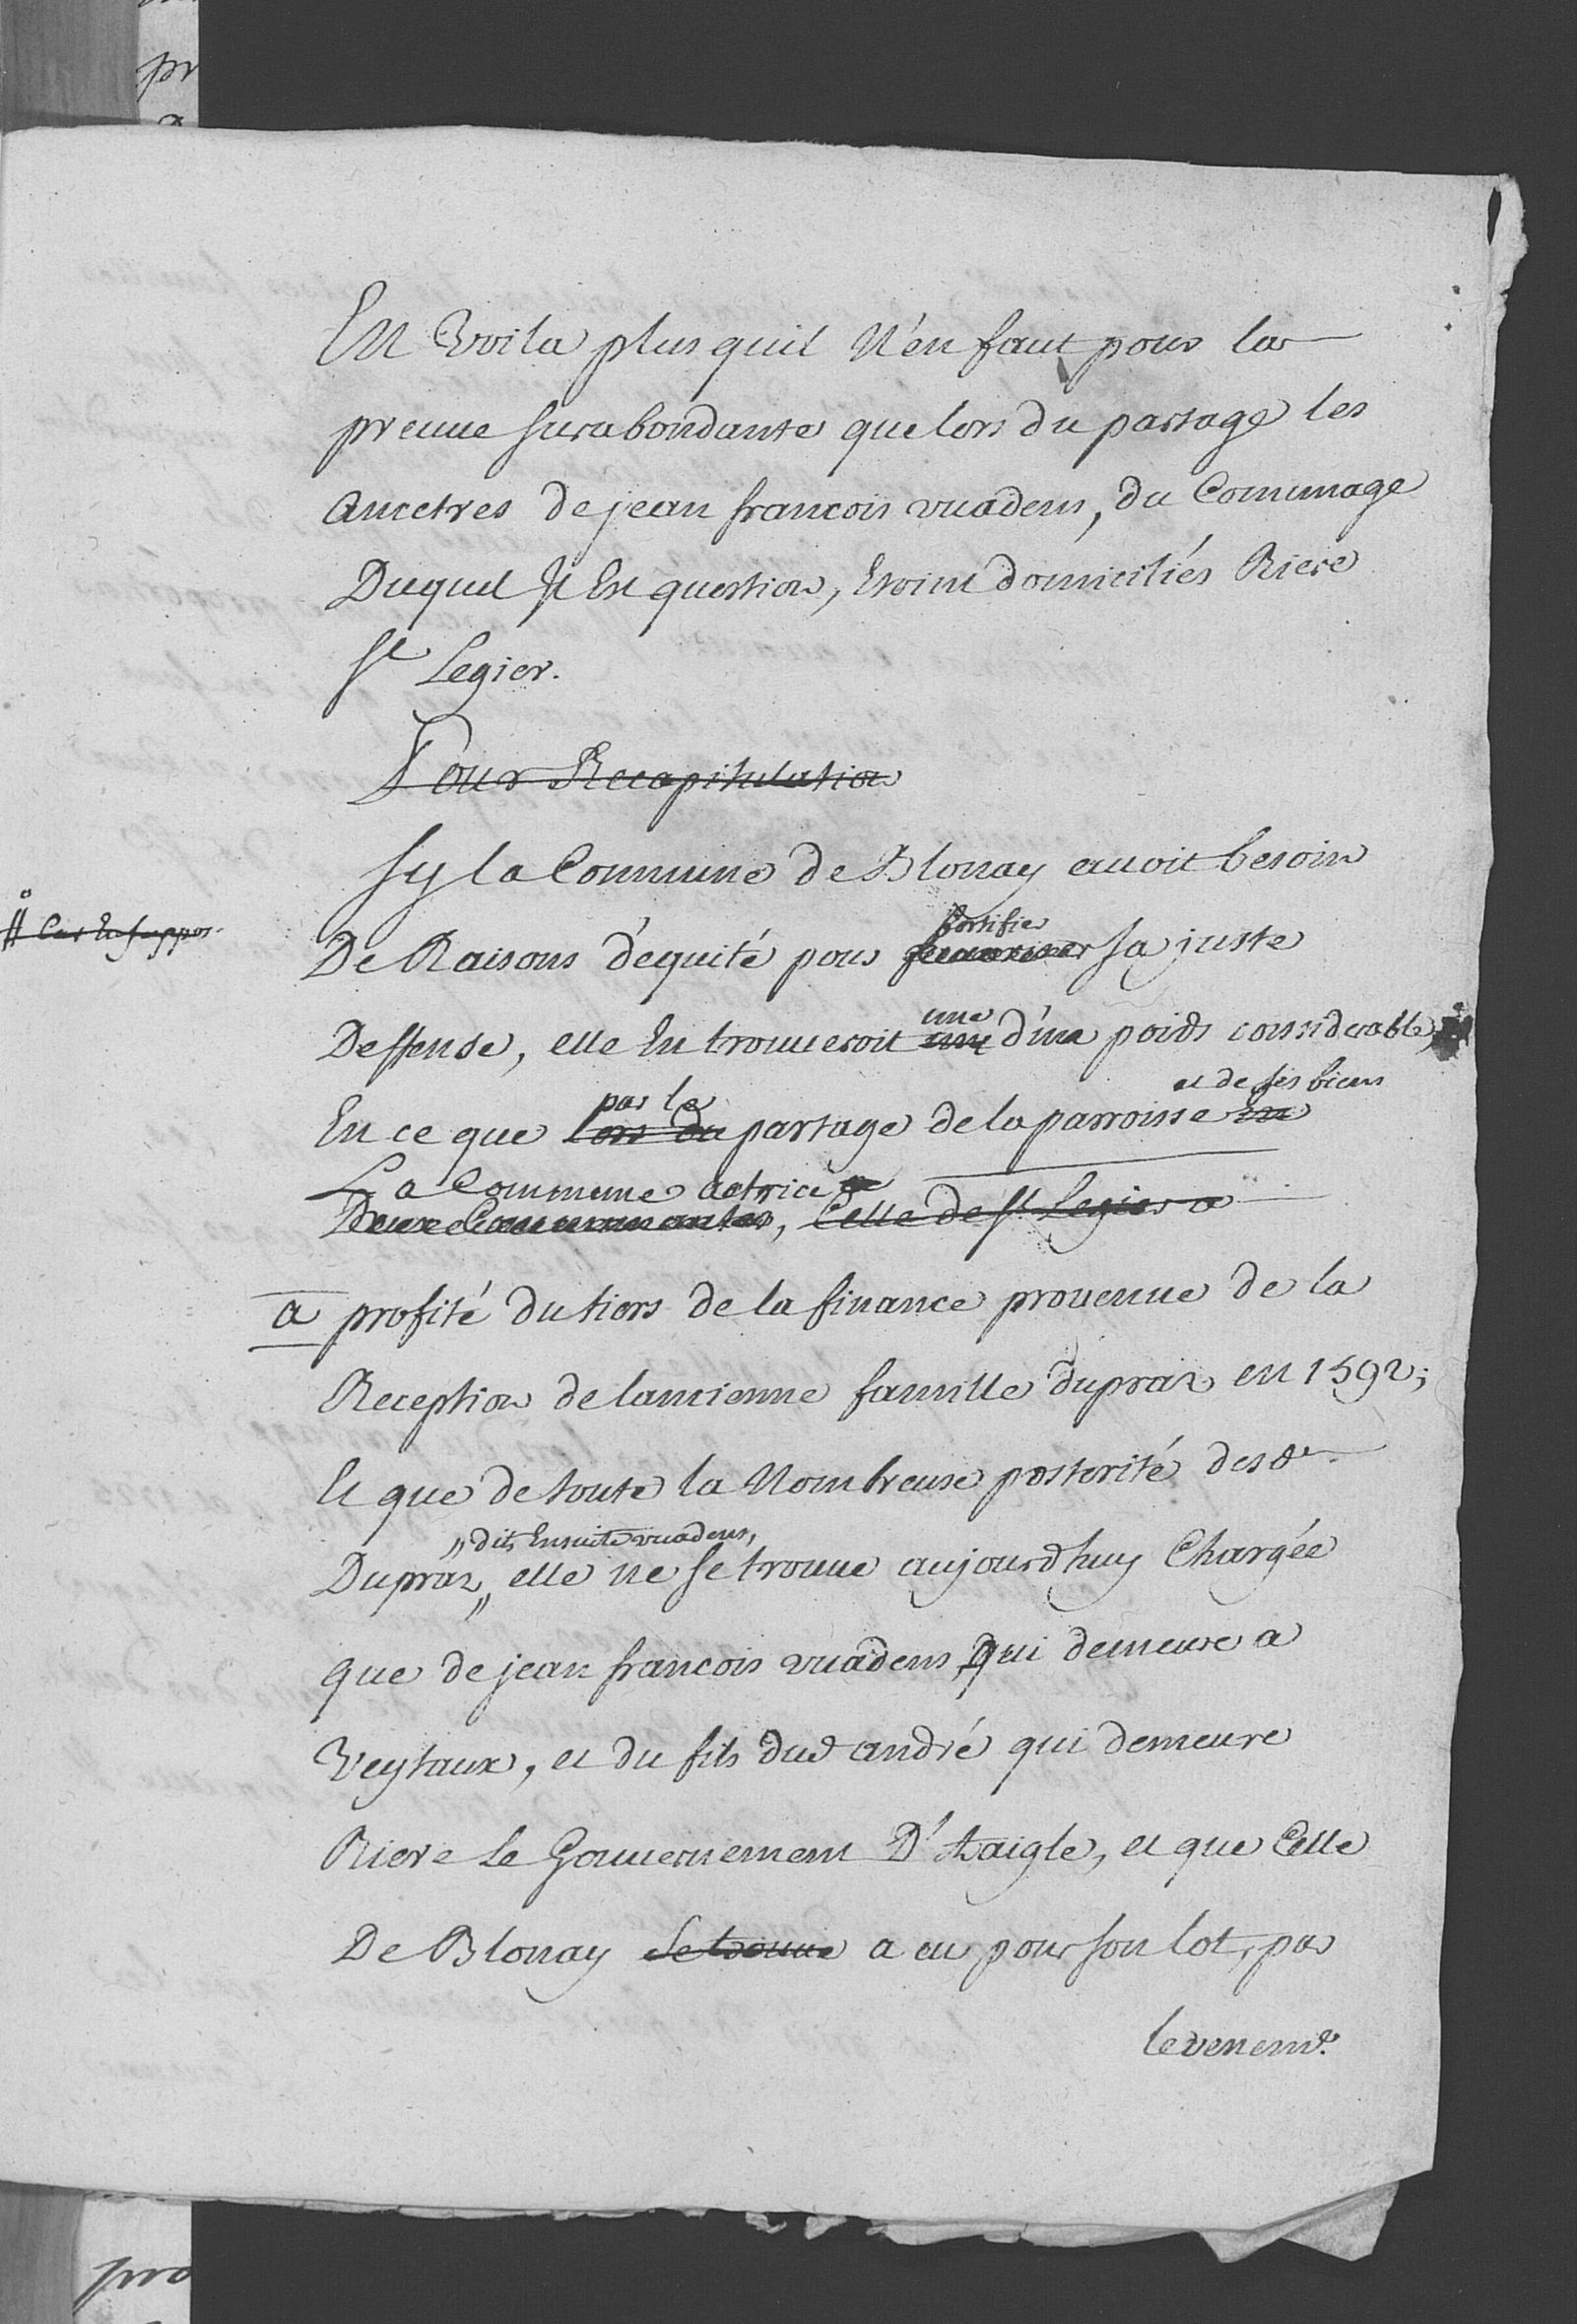 En Vvoila plus quil N'en faut pour la
preuue surabondante que lors du partage les
Ancetres de jean francois vuadens, du Communage
Duquel Il Est question, Etoint domiciliés Riere
St Legier.
Pour Recapitulation
Sy la Commune de Blonay auoit besoin
# Car En suppos.
fortifier
De Raisons d'equité pour fauoriser sa juste
une
Deffense, elle En trouueroit une d'un poids considerable,
par le et de ses biens
En ce que lors du partage de la parroisse en
La Commune actrice
Deux Communautes, Celle de St Legier a
a profité du tiers de la finance prouenue de la
Reception de lancienne famille dupraz en 1592;
Et que de toute la Nombreuse posterité des de
,, dits Ensuite vuadens,
Dupraz,, elle ne se trouue aujourdhuy Chargée
que de jean francois vuadens, qui demeure a
Veytaux, et du fils dud andré qui demeure
Riere le Gouuernement D'Aaigle, et que Celle
De Blonay se trouue a eu pour son lot, par
levenemt.